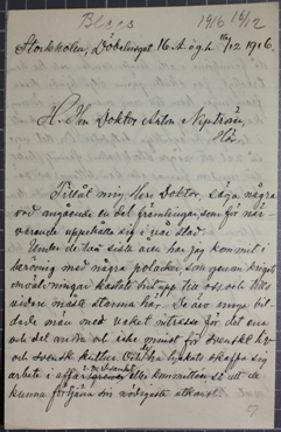 Blees 1916 16/12
Stockholm, Döbelnsgat. 16 A ö.g. 16/12 1916.
H. Herr Doktor Anton Nyström,
Här.
Tillåt mig, Herr Doktor, säga några
ord angående en del främlingar, som för när-
varande uppehålla sig i vår stad.
Under de två sista åren har jag kommit i
beröring med några polacker, som genom krigets
omvälvningar kastats hitupp till oss och tills
vidare måste stanna här. De äro unga bil-
dade män med vaket intresse för det ena
och det andra och icke minst för svenskt liv
och svensk kultur. Och ha lyckats skaffa sig
arbete i affärs eller kommittéer, så att de
kunna förtjäna sin nödigaste utkomst.